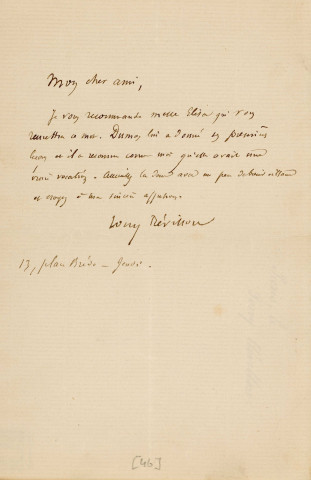 Mon cher ami,
Je vous recommande Melle Elisa qui vous
remettra ce mot. Dumas lui a donné ses premières
leçons et il a reconnu comme moi qu'elle avait une
vraie vocation. Accueillez la donc avec un peu de bienveillance
et croyez à ma sincère affection.
Tony Révillon
13, place Bréda — Jeudi.
[46]